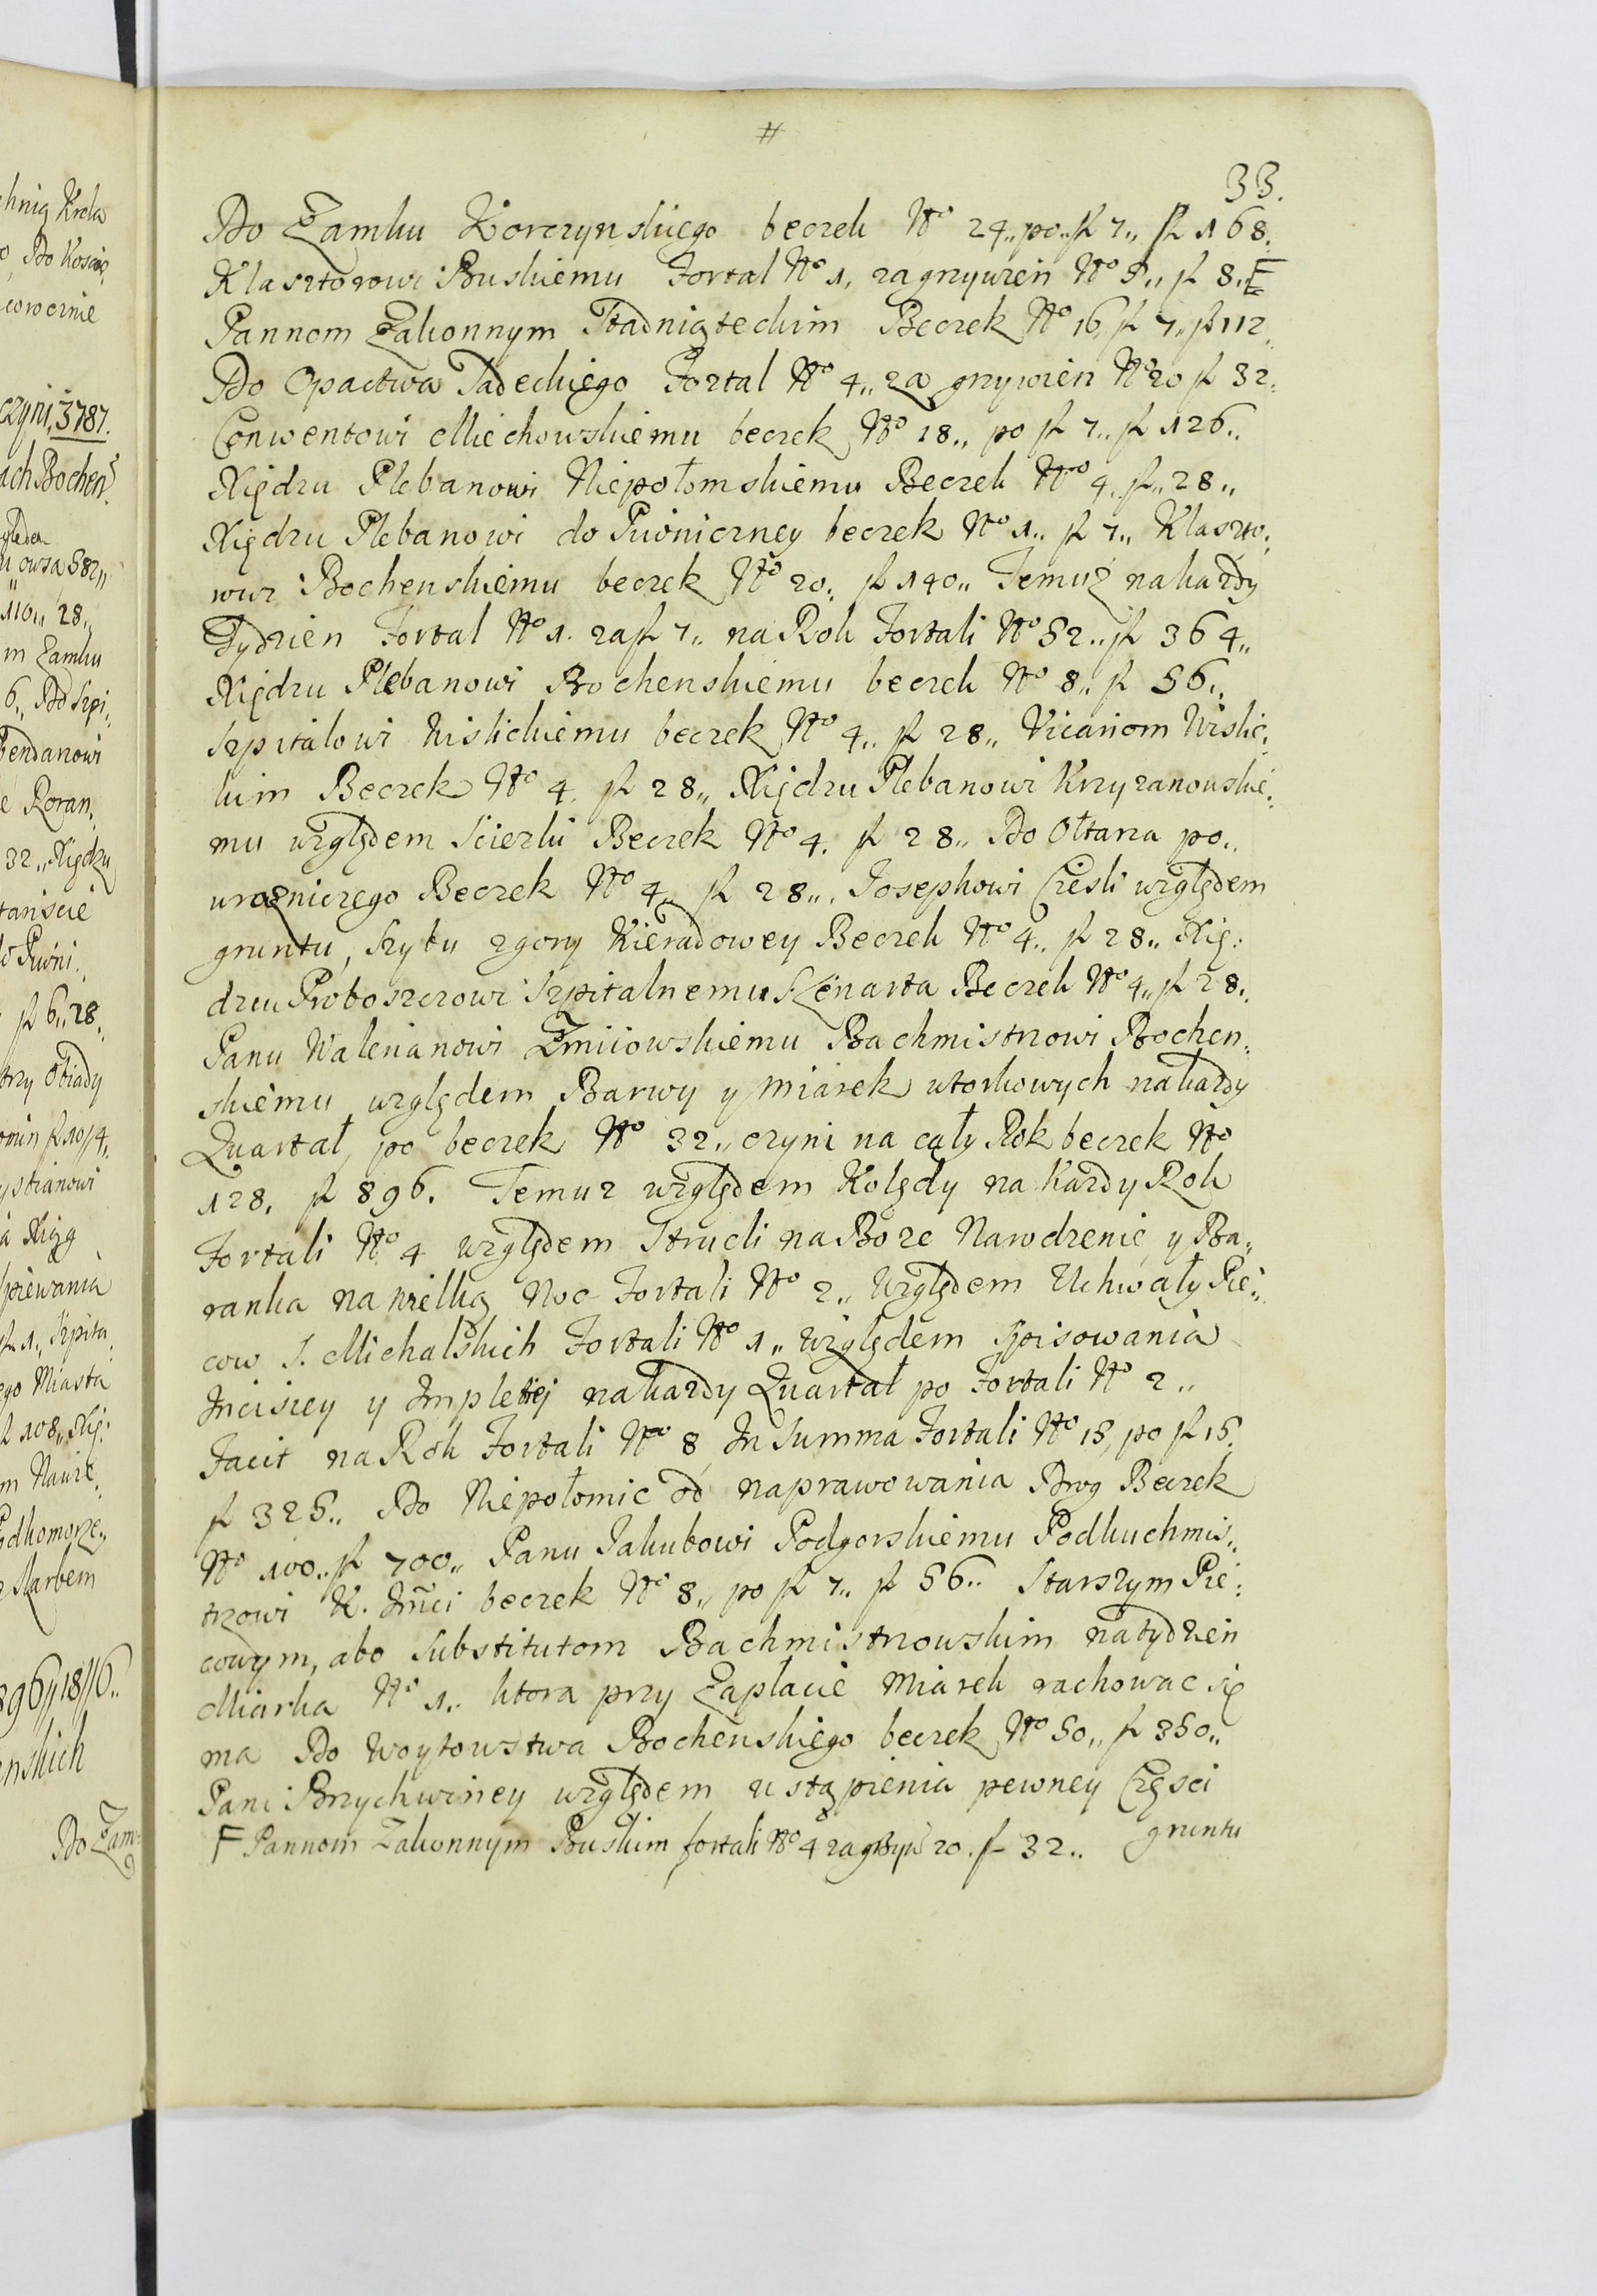 #
33.
Do Zamku Korczynskiego beczek No 24,, po,, f 7,, f 168.
Klasztorowi Buskiemu Fortal No 1, za grzywien No 5,, f 8,, F
Pannom Zakonnym Stadniąteckim Beczek No 16, f 7,, f 112.
Do Opactwa Tadeckiego Fortal No 4,, za grzywien No 20 f 32.
Conwentowi Miechowskiemu beczek No 18,, po f 7,, f 126,,
Xiędzu Plebanowi Niepołomskiemu Beczek No 4,, f,, 28,,
Xiędzu Plebanowi do Piwniczney beczek No 1,, f 7,, Klaszto:
wur Bochenskiemu beczek No 20,, f 140,, Temuz na kazdy
Tydzien Fortal No 1. za f 7,, na Rok Fortali No 52,, f 364,,
Xiędzu Plebanowi Bochenskiemu beczek No 8,, f 56,,
Szpitalowi Wislickiemu beczek No 4,, f 28,, Vicariom Wislic:
kim Beczek No 4. f 28,, Xiędzu Plebanowi Krzyzanowskie:
mu względem Sciezki Beczek No 4. f 28,, Do Ołtarza po,,
wrozniczego Beczek No 4,, f 28,,. Josephowi Ciesli względem
gruntu, Szybu z gory Kieradowey Beczek No 4,, f 28,, Xię:
dzu Proboszczowi Szpitalnemu S Lenarta Beczek No 4,, f 28,,
Panu Walerianowi Zmiiowskiemu Bachmistrzowi Bochen:
skiemu względem Barwy y Miarek wtorkowych na kazdy
Quartał, po beczek No 32,, czyni na cały Rok beczek No
128. f 896. Temuz względem Kolędy na Kazdy Rok
Fortali No 4 względem Strucli na Boze Narodzenie y Ba,,
ranka na wielką Noc Fortali No 2,, Względem Uchwały Pie:
cow S. Michalskich Fortali No 1,, Względem Spisowania
Inciszey y Impletiej na kazdy Quartał po Fortali No 2,,
Facit na Rok Fortali No 8, In Summa Fortali No 15, po f 15.
f 325,, Do Niepołomic od naprawowania Drog Beczek
No 100,, f 700,, Panu Jakubowi Podgorskiemu Podkuchmis,,
trzowi K. Jmci beczek No 8,, po f 7,, f 56,, Starszym Pie:
cowym, abo Substitutom Bachmistrzowskim na tydzien
Miarka No 1,, ktora przy Zapłacie Miarek rachowac się
ma Do Woytowstwa Bochenskiego beczek No 50,, f 350,,
Pani Brzychwiney względem ustąpienia pewney Części
gruntu
F Pannom Zakonnym Buskim fortali No 4 za grzyw 20. f 32,,